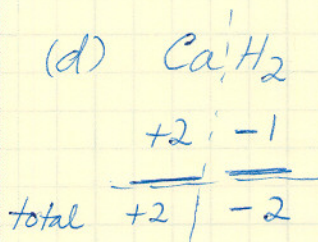 (d) CaH₂
+2 -1
total +2 -2